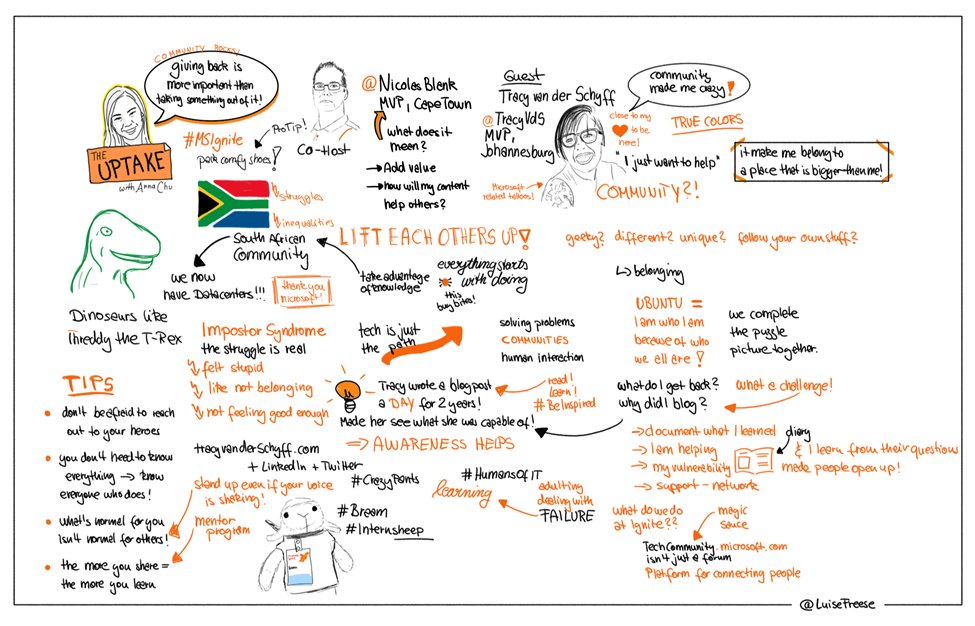 COMMUNITY ROCKS!
giving back is
more important than
taking something out of it!
THE
UPTAKE
with Anna Chu
#MSIgnite
ProTip!
pack comfy shoes!
Co-Host
@Nicolas Blank
MVP, Cape Town
what does it
mean?
→ Add value
→ how will my content
help others?
Guest
Tracy van der Schyff
@TracyVdS
MVP,
Johannesburg
Microsoft
related tattoos!
community
made me crazy!
close to my
to be
here!
"I just want to help"
COMMUNITY?!
TRUE COLORS
it make me belong to
a place that is bigger than me!
struggles
inequalities
South African
Community
we now
have Datacenters!!!
thank you
Microsoft!
LIFT EACH OTHERS UP!
take advantage
of knowledge
everything starts
with doing
this
bug bites!
geeky? different? unique? follow your own stuff?
↳ belonging
UBUNTU =
I am who I am
because of who
we all are!
we complete
the puzzle
picture together.
Dinosaurs like
Threddy the T-Rex
Impostor Syndrome
the struggle is real
felt stupid
like not belonging
not feeling good enough
tech is just
the path
solving problems
COMMUNITIES
human interaction
Tracy wrote a blog post
a DAY for 2 years!
Made her see what she was capable of!
⇒ AWARENESS HELPS
read!
learn!
#BeInspired
what do I get back?
why did I blog?
what a challenge!
→ document what I learned
→ I am helping
→ my vulnerability
→ support-network
diary
& I learn from their questions
made people open up!
TIPS
• don't be afraid to reach
out to your heroes
• you don't need to know
everything → know
everyone who does!
• what's normal for you
isn't normal for others!
• the more you share =
the more you learn
tracyvanderschyff.com
+ LinkedIn + Twitter
stand up even if your voice
is shaking!
mentor
program
#CrazyPants
#Bream
#Internsheep
#HumansOfIT
learning
adulting
dealing with
FAILURE
what do we do
at Ignite??
magic
sauce
TechCommunity.microsoft.com
isn't just a forum
Platform for connecting people
@LuiseFreese